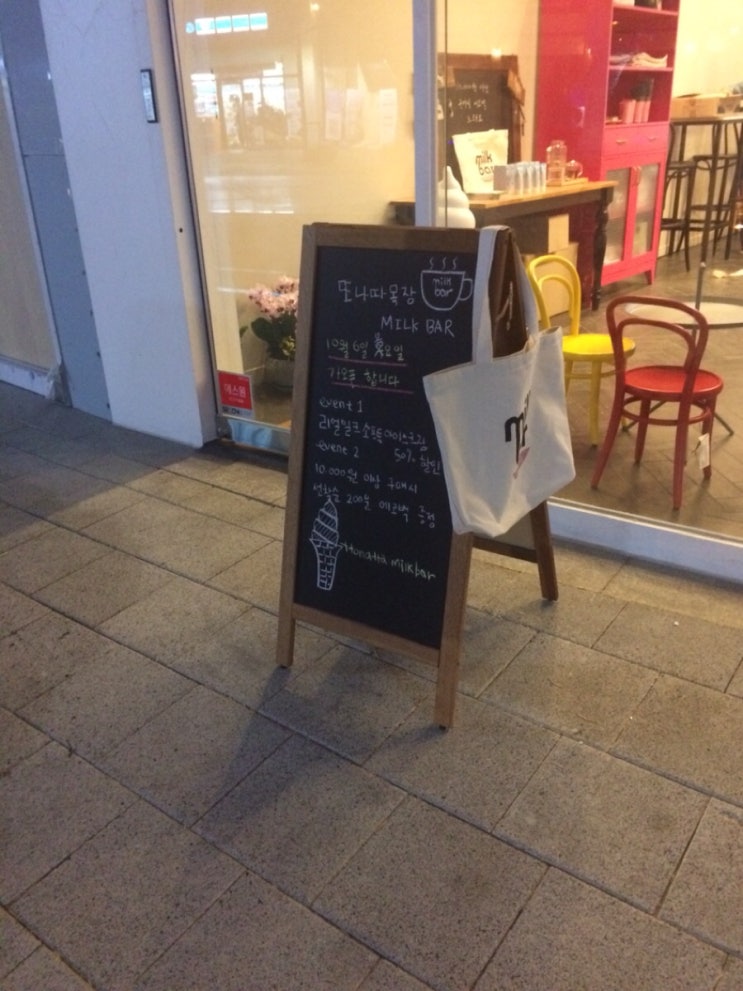 milk
bar
또나따목장
MILK BAR
10월 6일 요일
가오픈 합니다
event 1
리얼밀크소프트아이스크림
50% 할인
event 2
10.000원 이상 구매시
선착순 200분 에코백 증정
milkbar
milk
bar
에스원